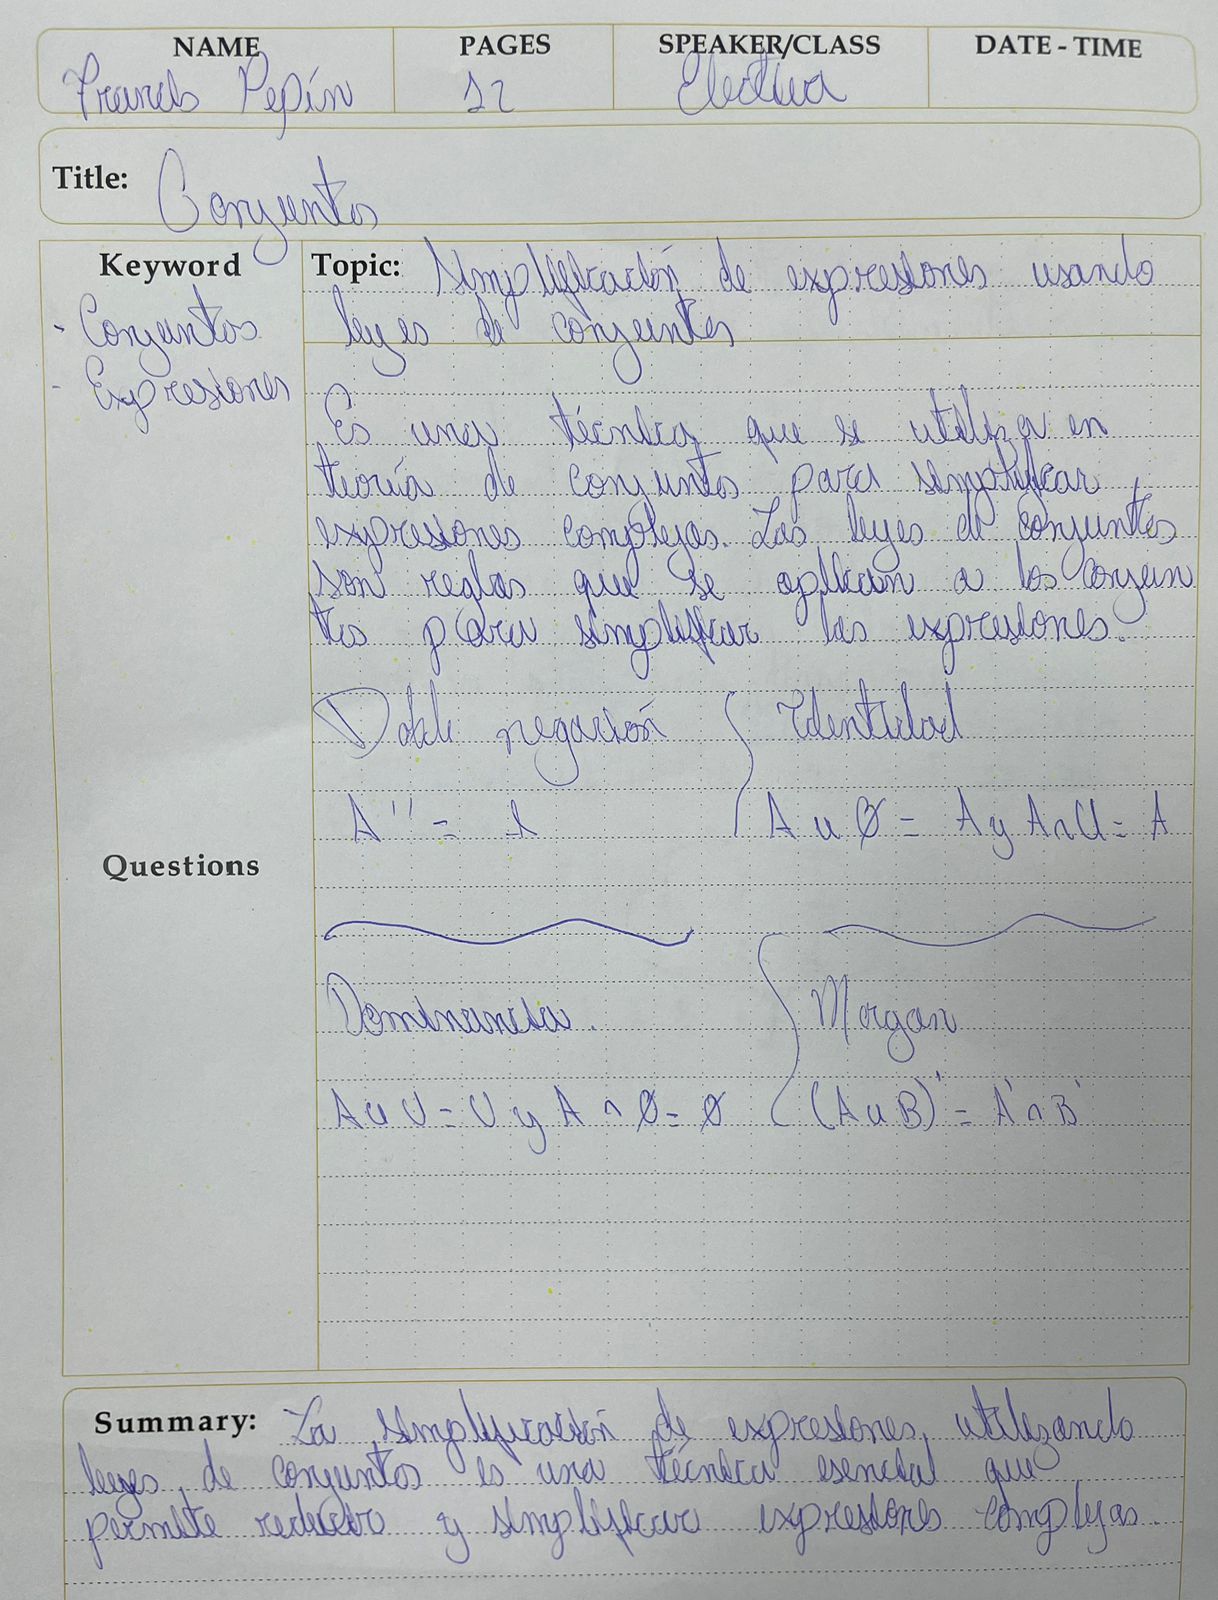 NAME PAGES SPEAKER/CLASS DATE - TIME
Francis Pepín 12 Electiva
Title: Conjuntos
Keyword
- Conjuntos
- Expresiones
Topic: Simplificación de expresiones usando
leyes de conjuntos
Es una técnica que se utiliza en
teoría de conjuntos para simplificar
expresiones complejas. Las leyes de conjuntos
son reglas que se aplican a los conjun
tos para simplificar las expresiones.
Doble negación Identidad
A'' = A A ∪ Ø = A y A ∩ U = A
Questions
Dominancia. Morgan
A ∪ U = U y A ∩ Ø = Ø (A ∪ B)' = A' ∩ B'
Summary: La simplificación de expresiones, utilizando
leyes de conjuntos es una técnica esencial que
permite reducir y simplificar expresiones complejas.